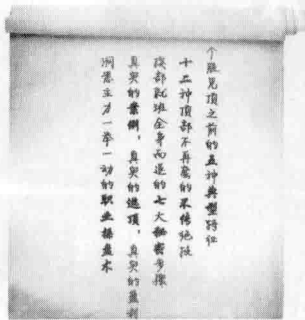 个股见顶之前的五种典型特征
十二种顶部不再套的不传绝技
按部就班全身而退的七大秘密步骤
真实的案例,真实的逃顶,真实的盈利
洞悉主力一举一动的职业操盘术